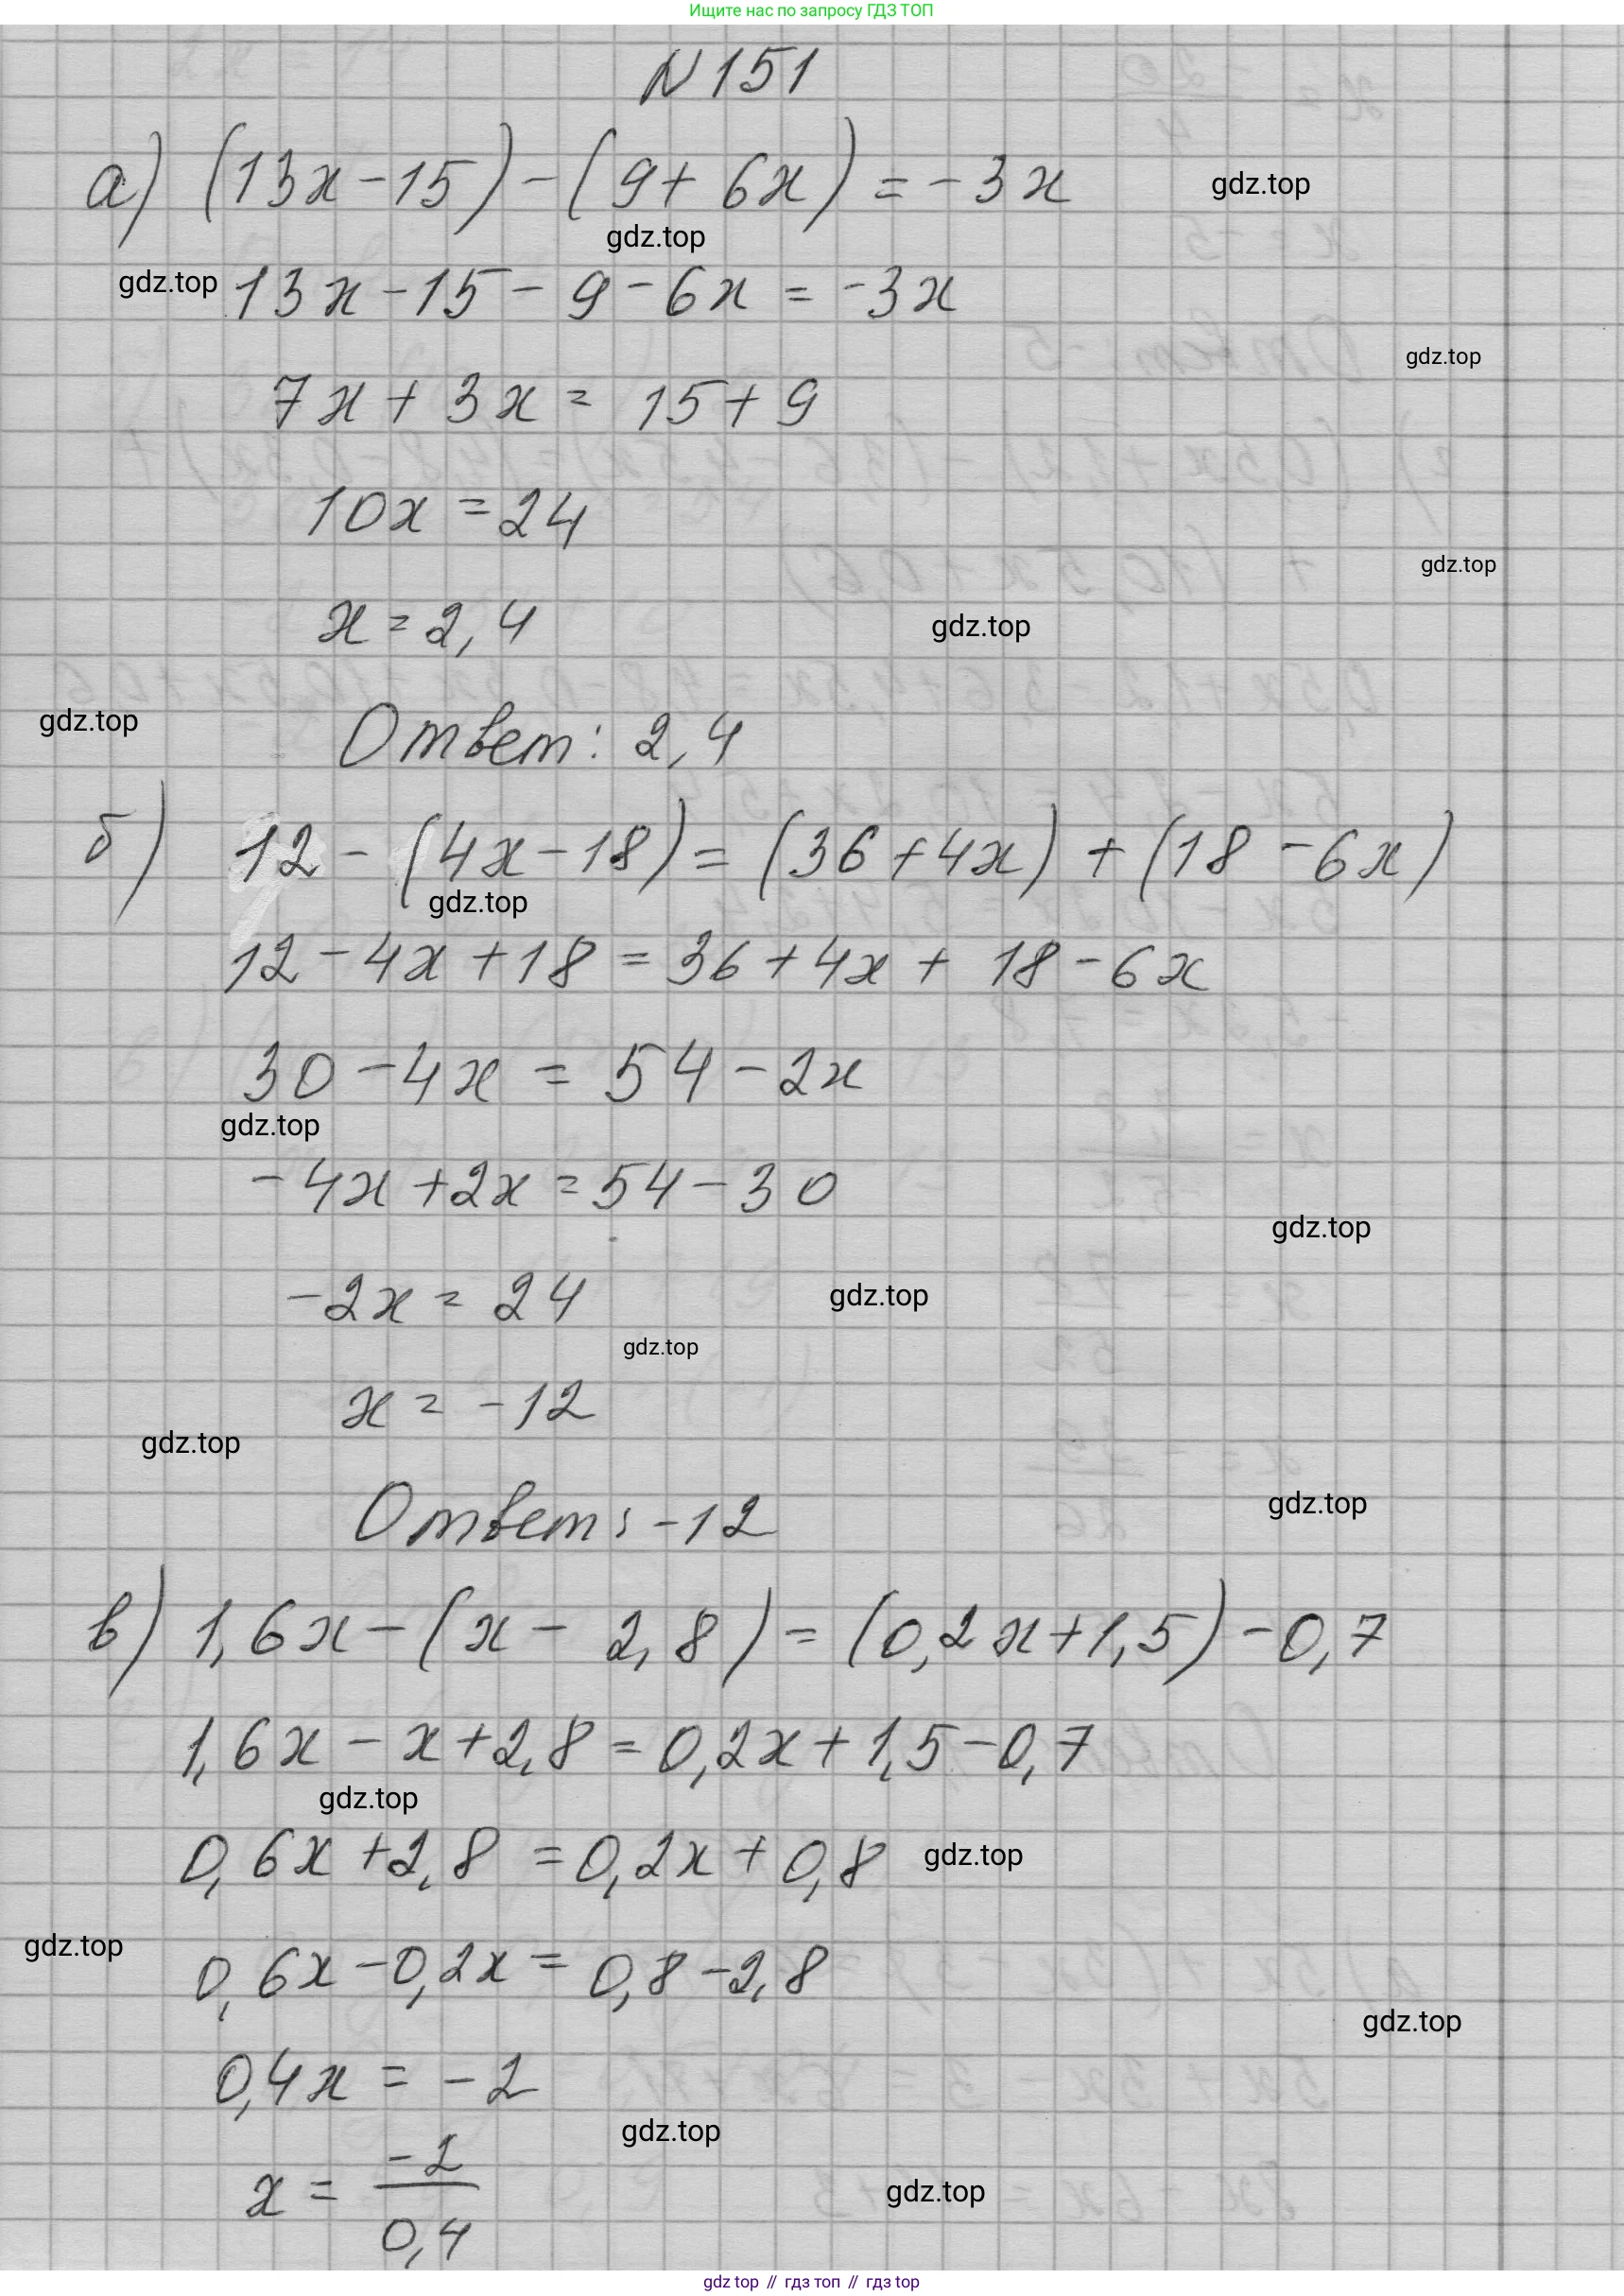 Ищите нас по запросу ГДЗ ТОП
N 151
а) (13x - 15) - (9 + 6x) = -3x
gdz.top
gdz.top
gdz.top
13x - 15 - 9 - 6x = -3x
gdz.top
7x + 3x = 15 + 9
10x = 24
gdz.top
x = 2,4
gdz.top
gdz.top
Ответ: 2,4
б) 12 - (4x - 18) = (36 + 4x) + (18 - 6x)
gdz.top
12 - 4x + 18 = 36 + 4x + 18 - 6x
30 - 4x = 54 - 2x
gdz.top
-4x + 2x = 54 - 30
gdz.top
-2x = 24
gdz.top
gdz.top
x = -12
gdz.top
gdz.top
Ответ: -12
в) 1,6x - (x - 2,8) = (0,2x + 1,5) - 0,7
1,6x - x + 2,8 = 0,2x + 1,5 - 0,7
gdz.top
0,6x + 2,8 = 0,2x + 0,8
gdz.top
gdz.top
0,6x - 0,2x = 0,8 - 2,8
gdz.top
0,4x = -2
gdz.top
x = -2 / 0,4
gdz.top
gdz top // гдз топ // гдз top